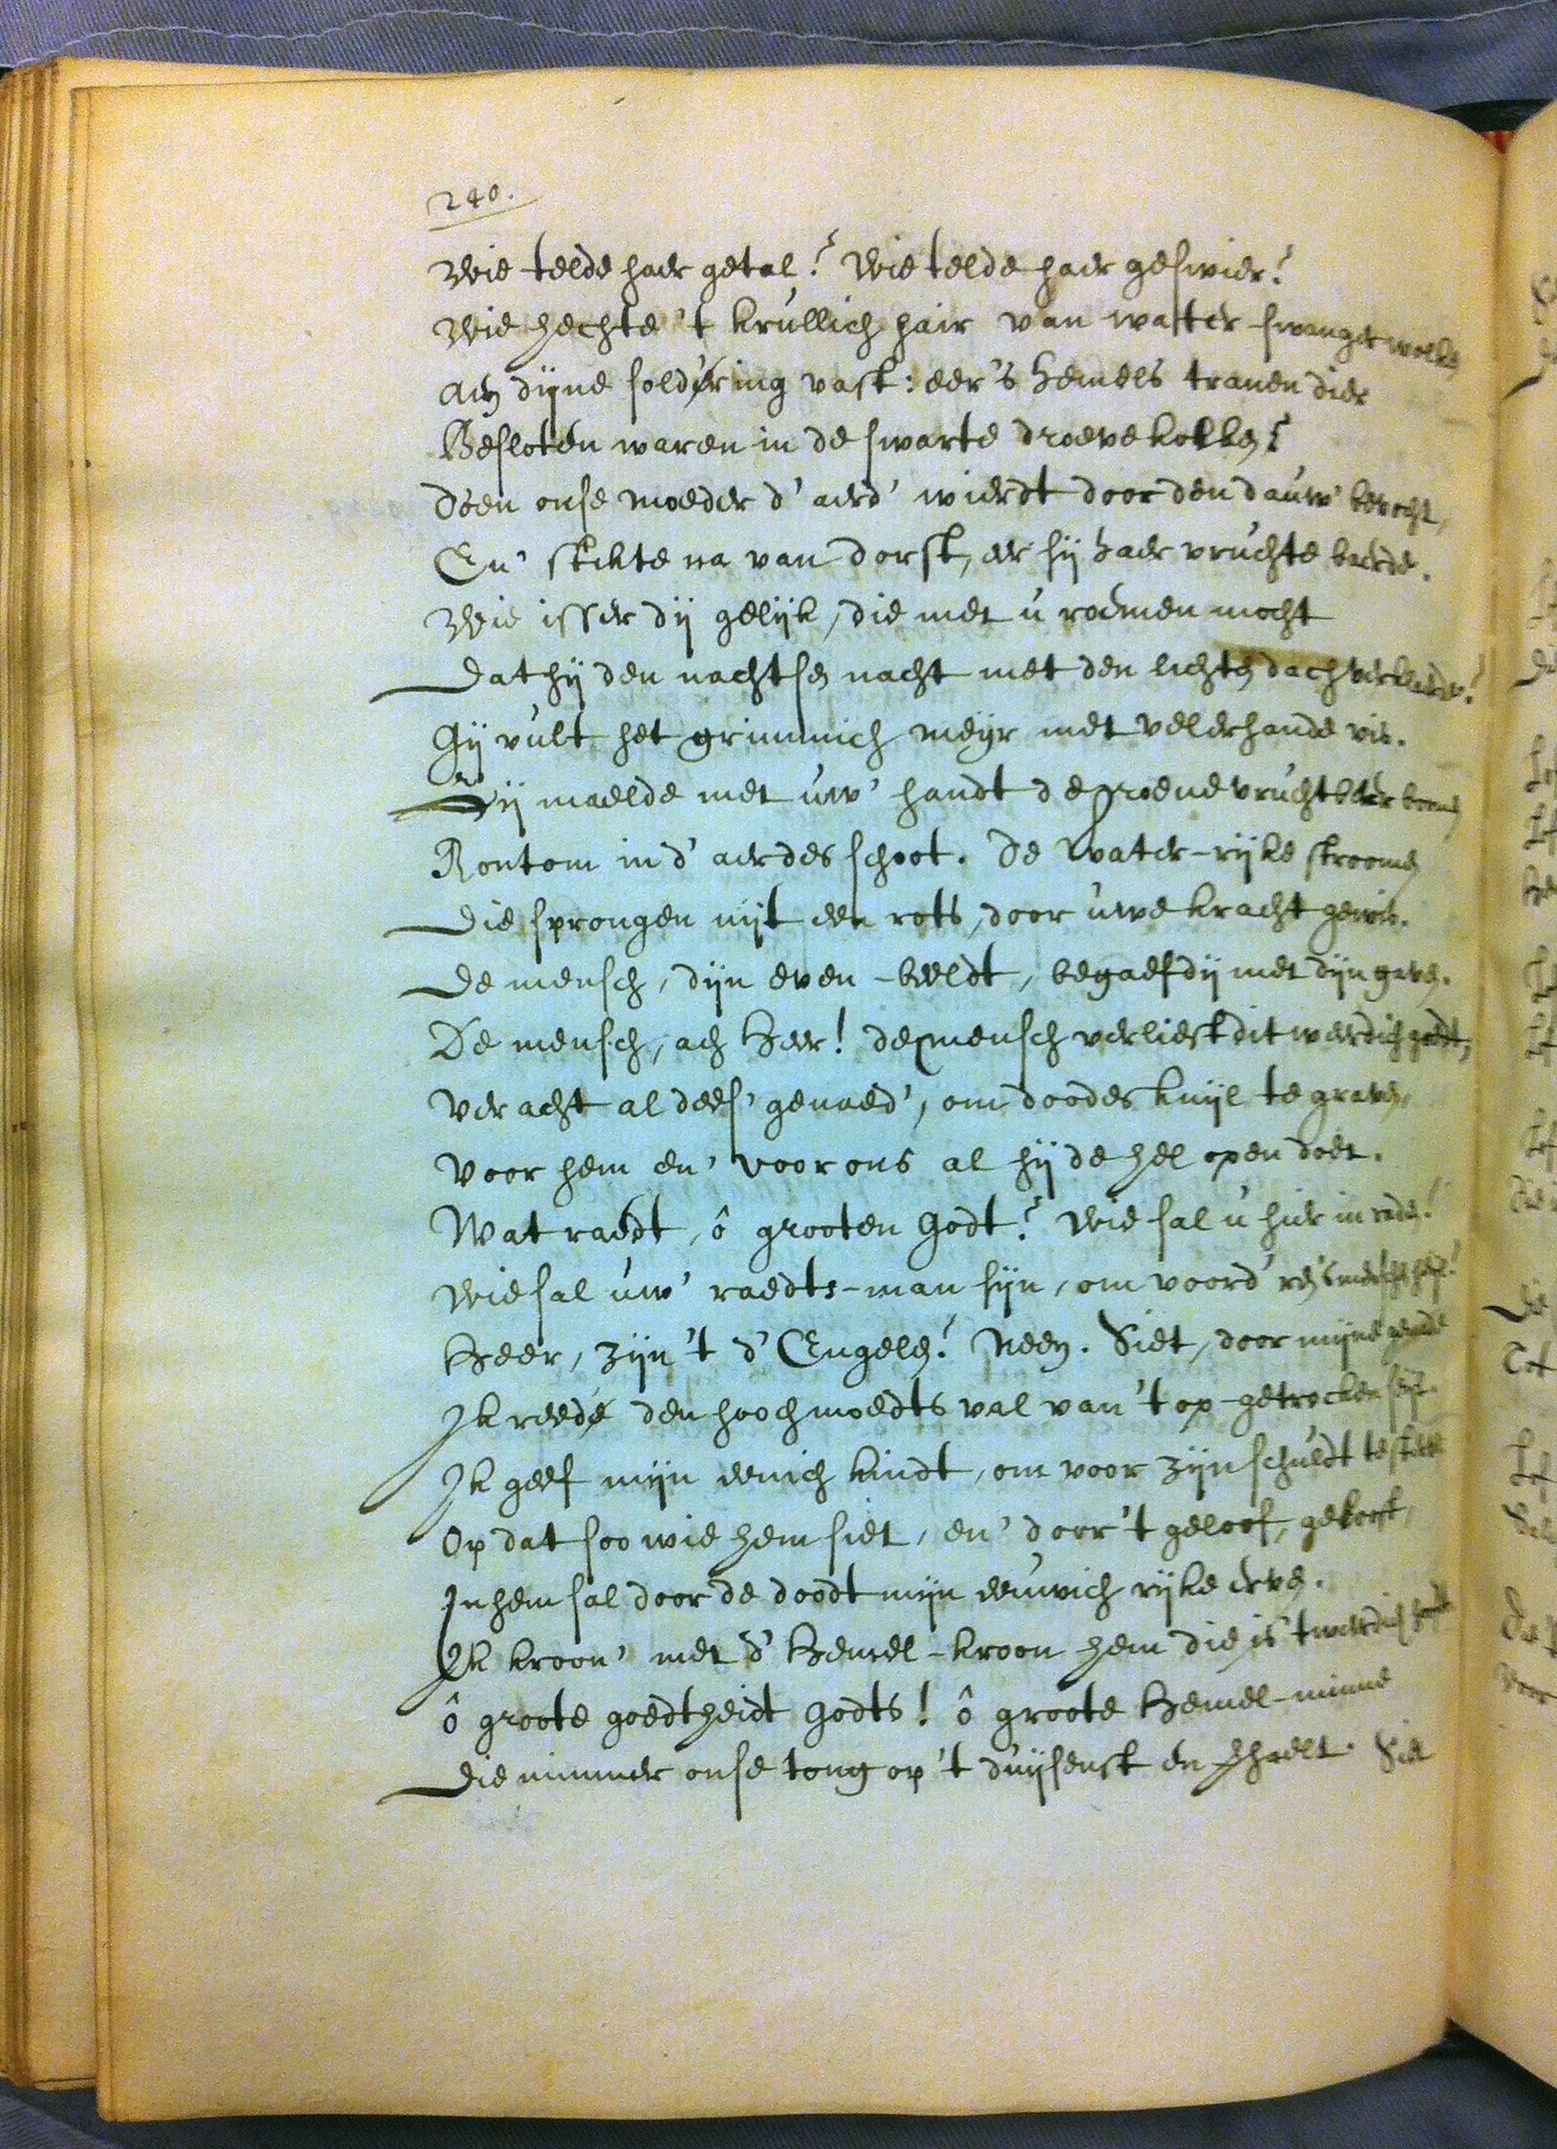 240.
Wie telde haer getal? Wie telde haer geswier?
Wie hechte 't krullich hair van watter-swanger wolken
Aen dijne soldering vast: eer 's hemels tranen dier
Besloten waren in de swarte droeve kolken?
Doen onse moeder d' aerd' wierdt door den dauw' bevocht,
En' stikte na van dorst, eer sij haer vruchte baerde.
Wie isser dij gelijk, die met u roemen mocht
Dat hij den nachtsen nacht met den lichten dach verklaerde?
Gij vult het grimmich meijr met velerhande vis.
Dij maelde met uw' handt de groene vruchtbaer boomen
Rontom in d' aerdes schoot. De water-rijke stroomen
Die sprongen uijt een rots, door uwe kracht gewis.
De mensch, dijn even-beeldt, begaefdij met dijn gaven.
De mensch, ach Heer! de mensch verliest dit weerdich goedt,
Veracht al dees' genaed', om doodes kuijl te graven,
Voor hem en' voor ons al hij de hel open doet.
Wat raedt, ô grooten Godt? Wie sal u hier in raden?
Wie sal uw' raedts-man sijn, om voord'
Heer, zijn 't d' Engelen? Neen. Siet, door mijne genade
Ik reede den hoochmoedts val van 't op-getrocken
Ik geef mijn eenich kindt, om voor zijn schuldt te sterven
Op dat soo wie hem siet, en' door 't geloof, gelooft,
In hem sal door de doodt mijn eeuwich rijke erven.
Ik kroon' met d' Hemel-kroon hem die is 't weerdich hooft
ô groote goedtheidt Godts! ô groote Hemel-minne
Die nimmer onse tong op 't duijsenst en haelt. Siet